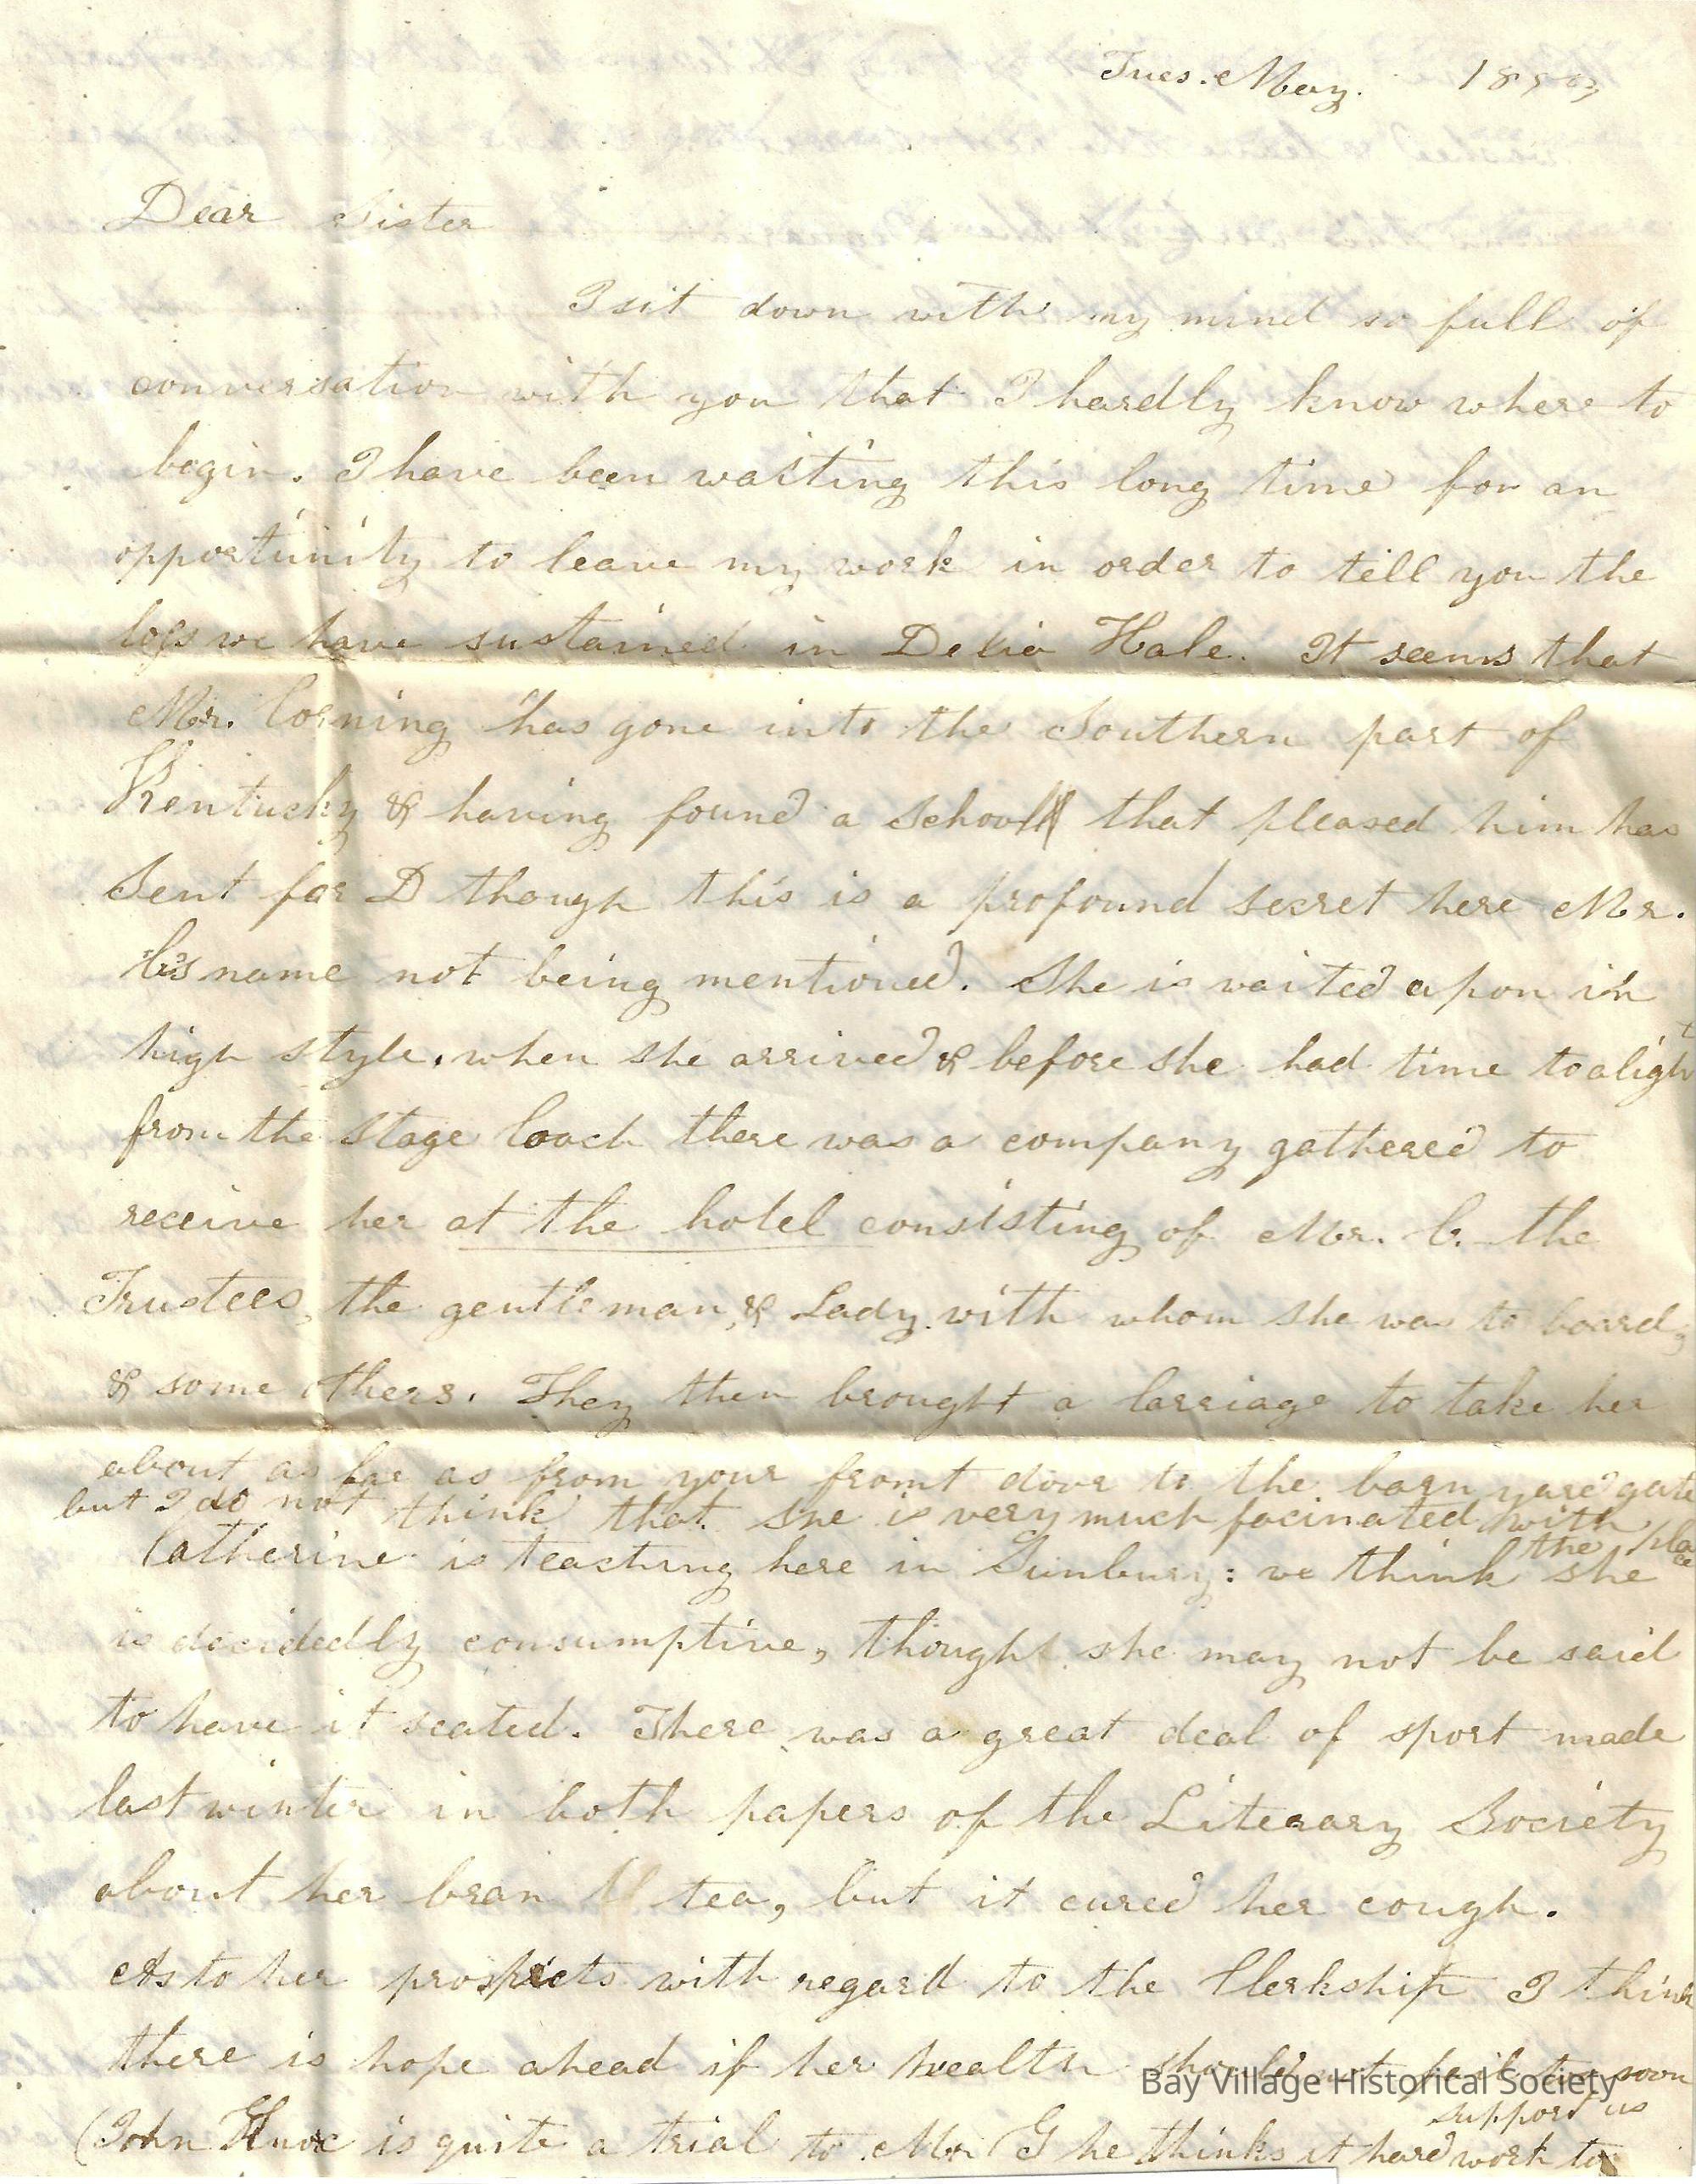 Tues. May. 1853
Dear Sister
I sit down with my mind so full of
conversation with you that I hardly know where to
begin. I have been waiting this long time for an
opportunity to leave my work in order to tell you the
loss we have sustained in Delia Hale. It seems that
Mr. Corning has gone into the Southern part of
Kentucky & having found a school that pleased him has
sent for D though this is a profound secret here Mr.
C's name not being mentioned. She is waited apon in
high style. when she arrived & before she had time to alight
from the stage Coach there was a company gathered to
receive her at the hotel consisting of Mr. C. the
Trustees, the gentleman, & Lady with whom she was to board,
& some others. They then brought a Carriage to take her
about as far as from your fromt door to the barn yard gate
but I do not think that she is very much facinated with the place
Catherine is teaching here in Sunbury: we think she
is decidedly consumptive, though she may not be said
to have it seated. There was a great deal of sport made
last winter in both papers of the Literary Society
about her bran tea, but it cured her cough.
As to her prospects with regard to the Clerkship I think
there is hope ahead if her health should not fail too soon
Bay Village Historical Society
(John Knox is quite a trial to Mr G he thinks it hard work to
support us